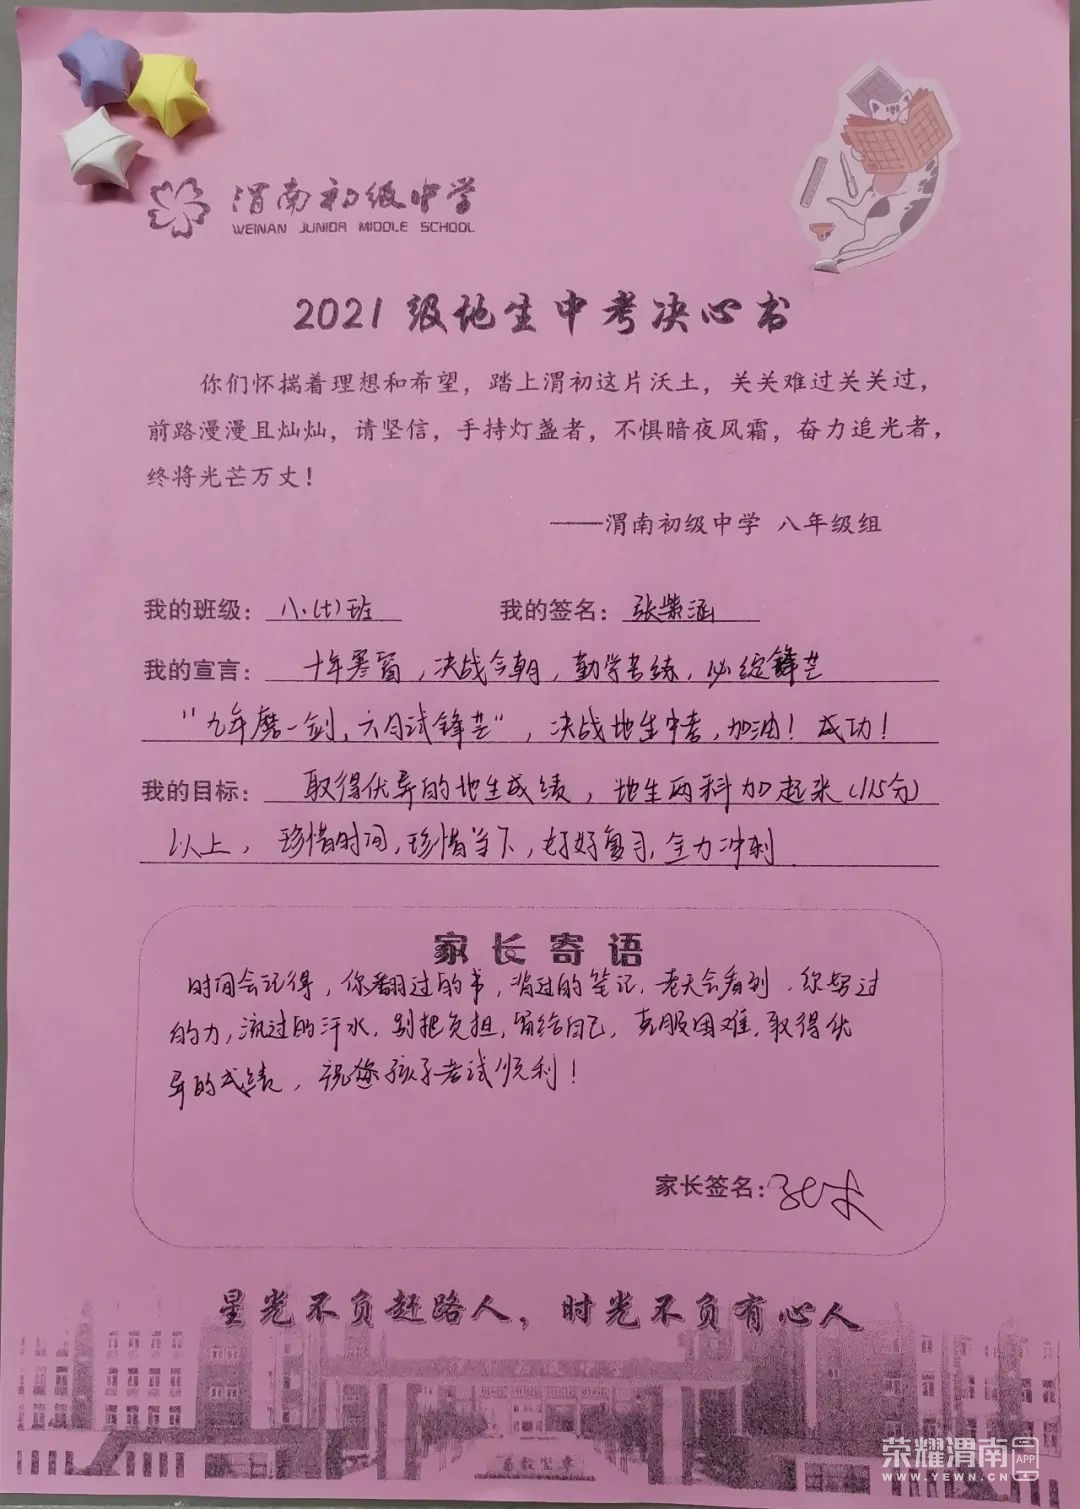 渭南初级中学
WEINAN JUNIOR MIDDLE SCHOOL
2021级地生中考决心书
你们怀揣着理想和希望，踏上渭初这片沃土，关关难过关关过，
前路漫漫且灿灿，请坚信，手持灯盏者，不惧暗夜风霜，奋力追光者，
终将光芒万丈！
——渭南初级中学 八年级组
我的班级：八.(七)班 我的签名：张紫涵
我的宣言：十年寒窗，决战今朝，勤学苦练，必绽锋芒
“九年磨一剑，六月试锋芒”，决战地生中考，加油！成功！
我的目标：取得优异的地生成绩，地生两科加起来(115分)
以上，珍惜时间，珍惜当下，好好复习，全力冲刺.
家长寄语
时间会记得，你翻过的书，背过的笔记，老天会看到，你努过
的力，流过的汗水，别把负担，留给自己，克服困难，取得优
异的成绩，祝您孩子考试顺利！
家长签名：
星光不负赶路人，时光不负有心人
荣耀渭南APP
WWW.YEWN.CN